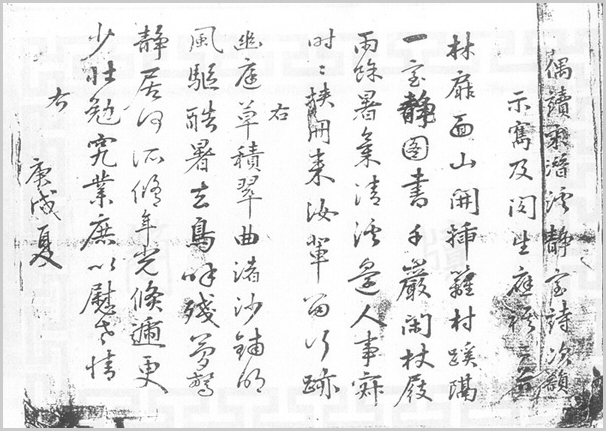 偶讀宋潛溪靜室詩次韻
示寯及閔生應祺二首
林扉面山開插籬村蹊隔
一室靜圖書千巖閑杖屐
雨餘暑氣清溪邊人事寂
時〻挾冊來汝輩留行跡
右
幽庭草積翠曲渚沙鋪明
風驅酷暑去鳥哢殘夢驚
靜居何所脩年光倏邇更
少壯勉究業庶以慰老情
右
庚戌夏